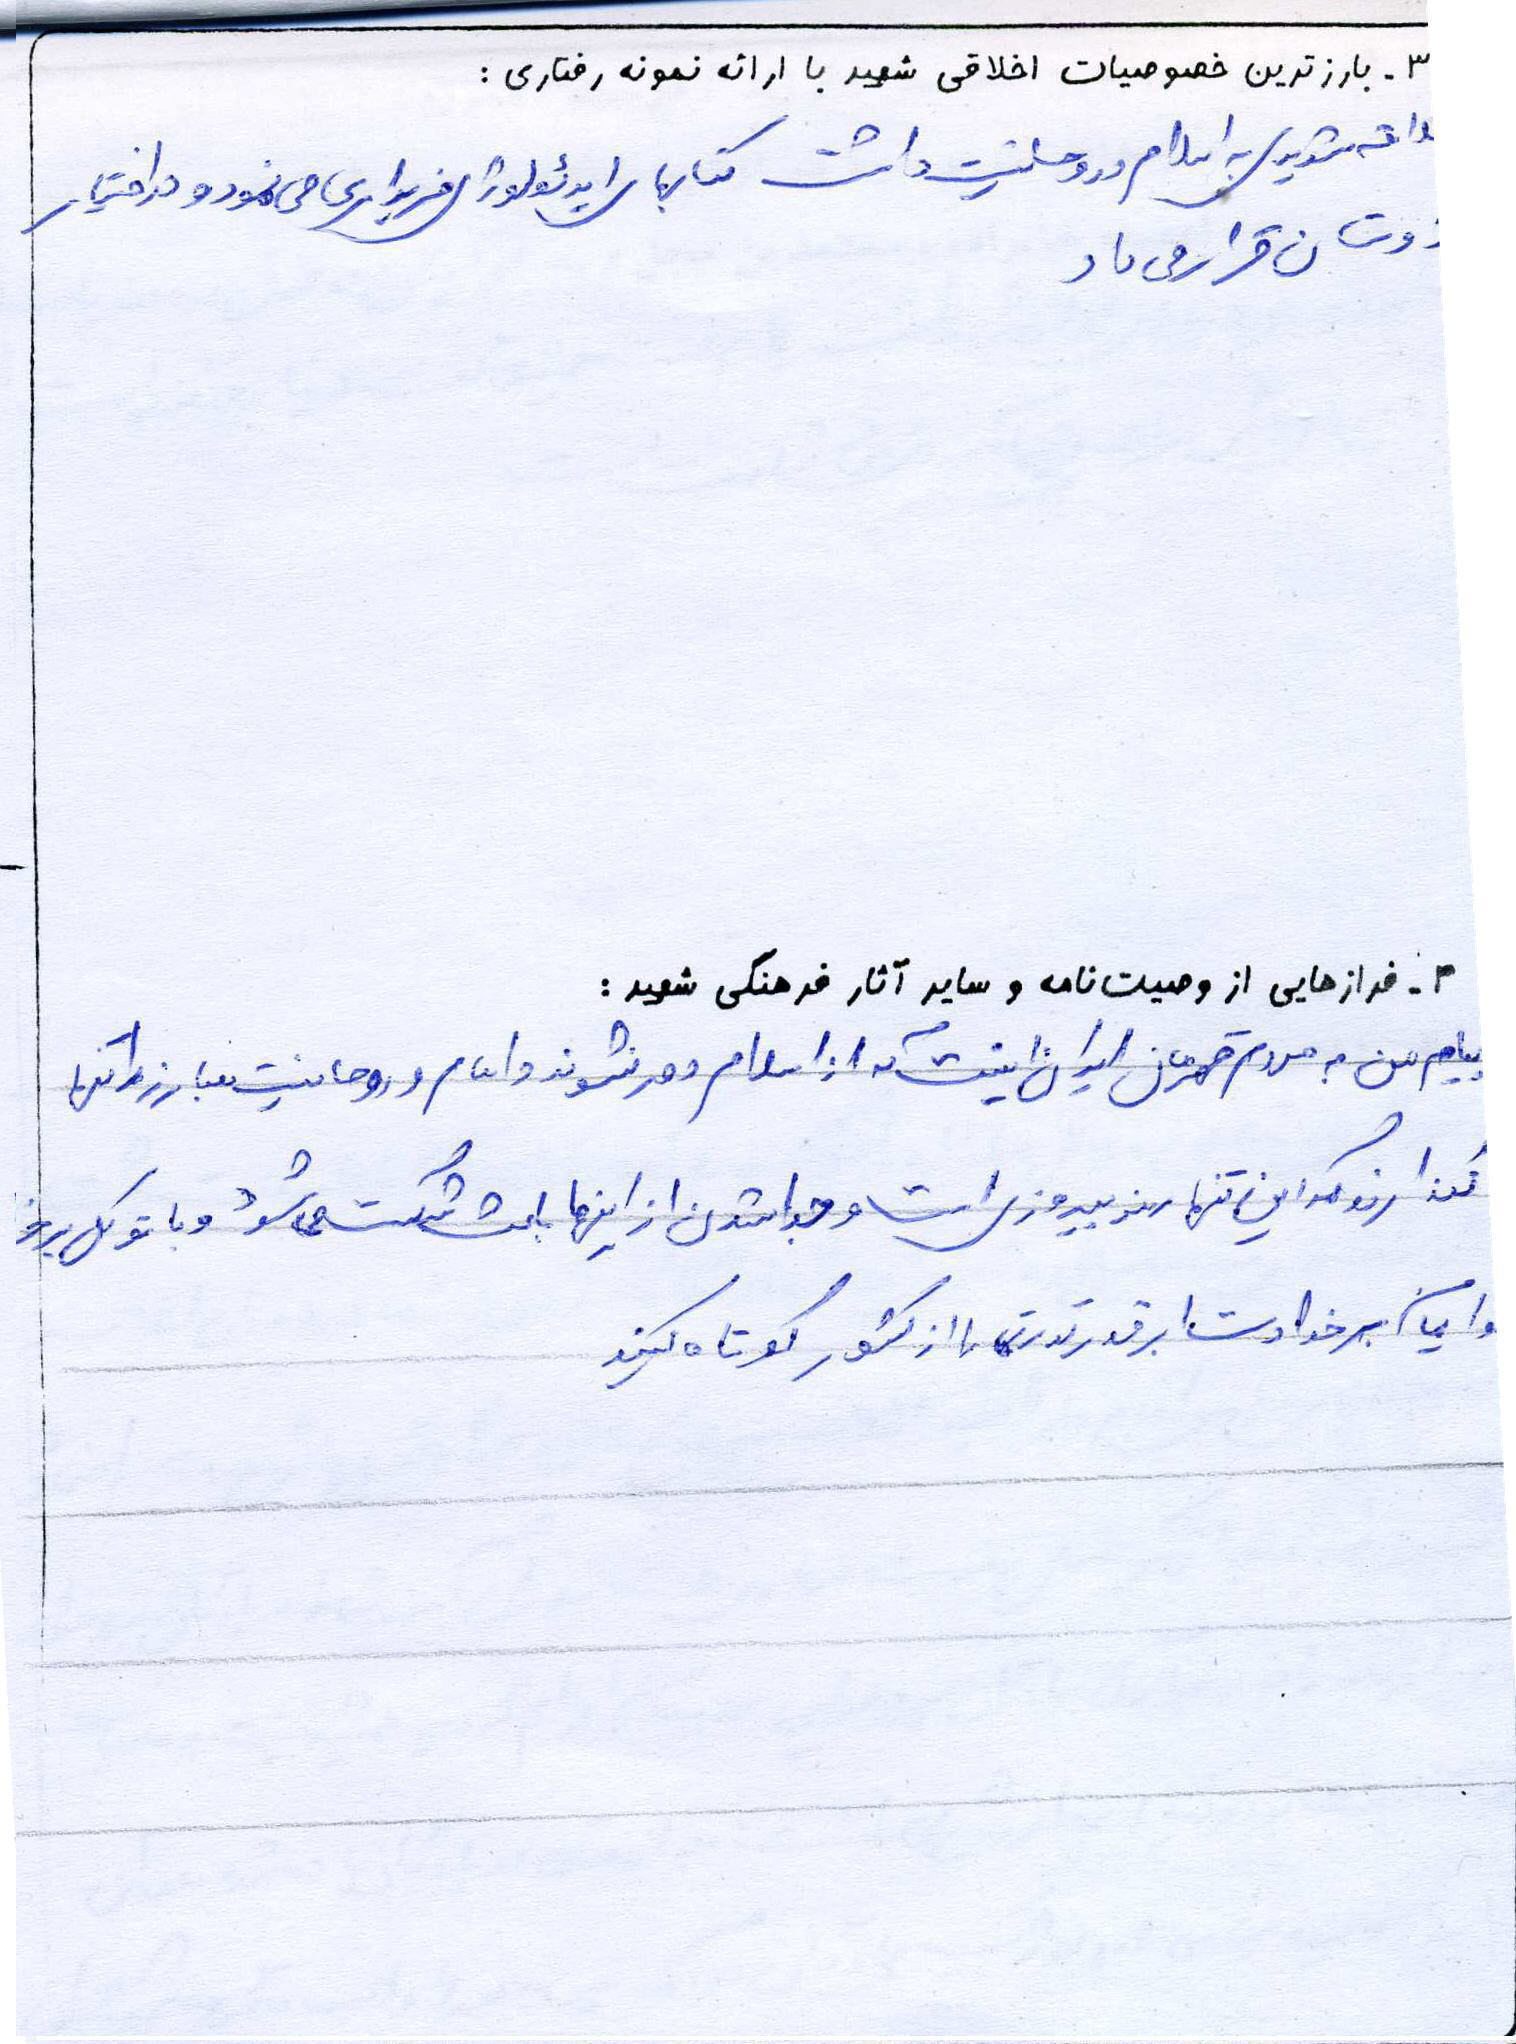 ۳- بارزترین خصوصیات اخلاقی شهید با ارائه نمونه رفتاری :
شدیدی به اسلام و روحانیت داشت کتابهای ایدئولوژی خریداری می نمود و در اختیار
دوستان قرار می داد
۴- فرازهایی از وصیت‌نامه و سایر آثار فرهنگی شهید :
پیام من به مردم قهرمان ایران اینست که از اسلام دور نشوند و امام و روحانیت مبارز را تنها
نگذارند که این تنها رمز پیروزی است و جدا شدن از اینها باعث شکست می شود و با توکل بر خدا
و ایمان بر خدا دست ابرقدرتها را از کشور کوتاه کنید